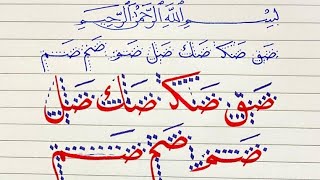 بِسْمِ اللّٰهِ الرَّحْمٰنِ الرَّحِيْمِ
ضق ضکا ضك ضل ضو ضم ضم
ضق ضکا ضك ضل
ضو ضم ضم